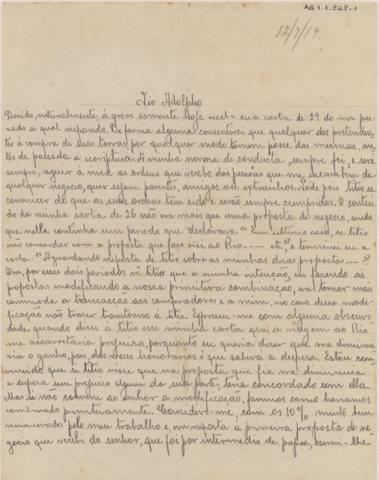 AG 1.1.328-1
12/7/19.
Tio Adolpho
Devido, naturalmente, á greve somente hoje recebi sua carta de 29 do mez pas-
sado a qual respondo. De forma alguma consentirei que qualquer dos pretenden-
tes á compra de suas terras por qualquer modo tomem posse das mesmas, an-
tes de passada a escriptura. A minha norma de conducta, sempre foi, e será
sempre, seguir á risca as ordens que recebo das pessoas que me incumbem de
qualquer negocio, quer sejam parentes, amigos ou extranhos. Pode pois titio se
convencer de que as suas ordens têm sido e serão sempre cumpridas. O conteú-
do da minha carta de 26 não era mais que uma proposta de negocio, sendo
que nella continha um periodo que declarava "Em ultimo caso, se titio
não concordar com a proposta que faço irei ao Rio --- etc", e terminei eu a
carta "Aguardando resposta de titio sobre as minhas duas propostas ---"
Ora, por esses dois periodos vê titio que a minha intenção, em fazendo as
propostas modificando a nossa primitiva combinação, era tornar mais
commoda a transacção aos compradores e a mim, no caso dessa modi-
ficação não trazer transtorno á titio. Expressei-me com alguma obscuri-
dade quando disse a titio em minha carta que a viagem ao Rio
me accarretaria prejuizo, porquanto eu queria dizer que me diminui-
ria o ganho, pois dos meus honorarios é que sahiria a despeza. Estou con-
vencido que si titio visse que na proposta que fiz me diminuia
a despeza, sem prejuizo algum da sua parte, teria concordado com ella.
Mas si não convem ao senhor a modificação, faremos como haviamos
combinado primitivamente. Considero-me, com os 10% muito bem
remunerado pelo meu trabalho e, em resposta á primeira proposta de ne-
gocio que recebi do senhor, que foi por intermedio de papae, escrevi-lhe